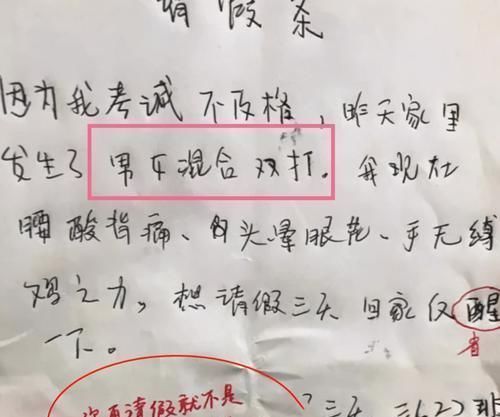 请假条
因为我考诚不及格,昨天家里
发生了男女混合双打。我现在
腰酸背痛、白头晕眼花、手无缚
鸡之力,想请假三天回家仅醒
省
一下。
再请假就不是
三天